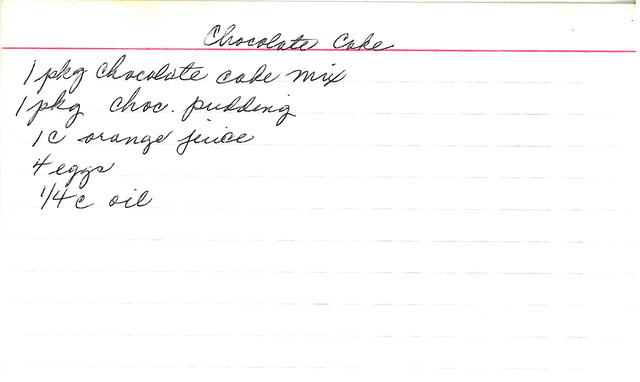 Chocolate Cake
1 pkg chocolate cake mix
1 pkg choc. pudding
1 c orange juice
4 eggs
1/4 c oil